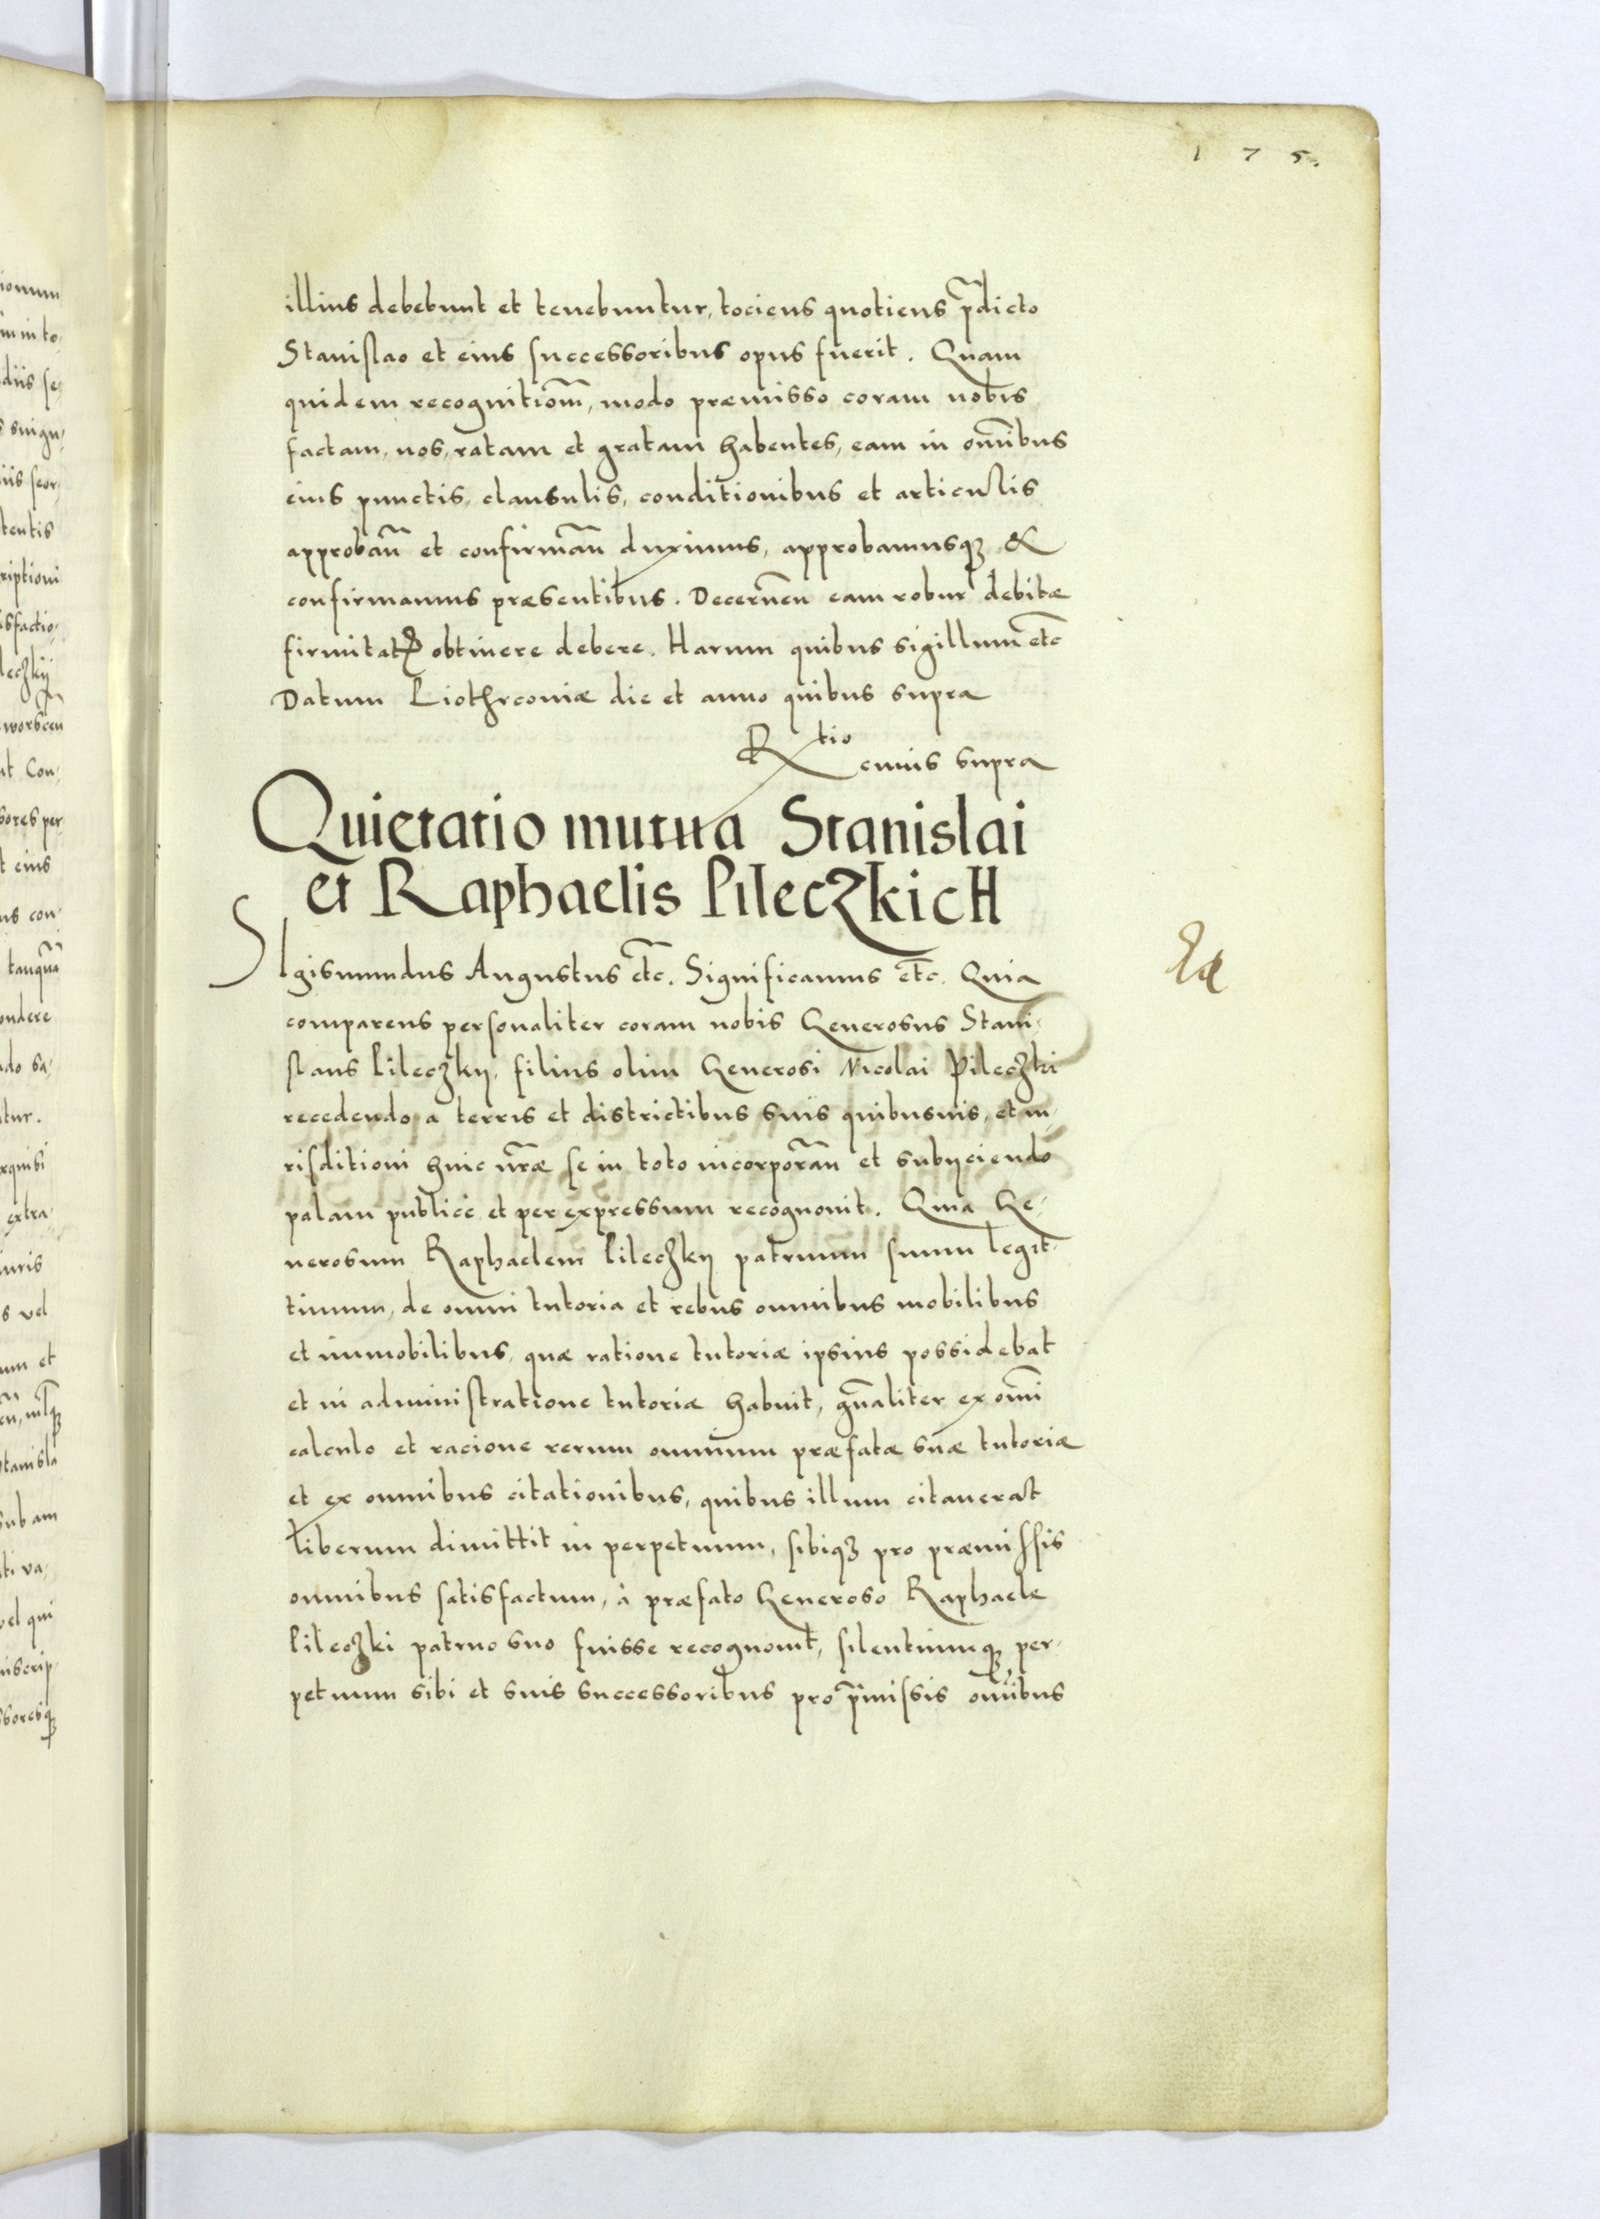 175.
illius debebunt et tenebuntur, tociens quotiens p̃dicto
Stanislao et eius successoribus opus fuerit. Quam
quidem recognitiom̃, modo præmisso coram nobis
factam, nos, ratam et gratam habentes, eam in om̃ibus
eius punctis, clausulis, conditionibus et articulis
approbañ et confirmañ duximus, approbamusq3 &
confirmamus præsentibus. Decerneñ eam robur debitæ
firmitatꝭ obtinere debere. Harum quibus sigillum etc̃
Datum Liothrconiæ die et anno quibus supra
Rtio cuius supra
Quietatio mutua Stanislai
et Raphaelis Pileczkich
SIgismundus Augustus etc̃. Significamus etc̃. Quia
comparens personaliter coram nobis Generosus Stani-
slaus Pileczky, filius olim Generosi Nicolai Pileczki
recedendo a terris et districtibus suis quibusuis, et iu-
risditioni huic nr̃æ se in toto incorporañ et subijciendo
palam publicè et per expressum recognouit. Quia Ge-
nerosum Raphaelem Pileczky patruum suum legit-
timum, de omni tutoria et rebus omnibus mobilibus
et immobilibus, quæ ratione tutoriæ ipsius possidebat
et in administratione tutoriæ habuit, gñaliter ex om̃i
calculo et racione rerum omnium præfatæ suæ tutoriæ
et ex omnibus citationibus, quibus illum citauerat
liberum dimittit in perpetuum, sibiq3 pro præmissis
omnibus satisfactum, à præfato Generoso Raphaele
Pileczki patruo suo fuisse recognouit, silentiumq3 per-
petuum sibi et suis successoribus pro p̃missis om̃ibus